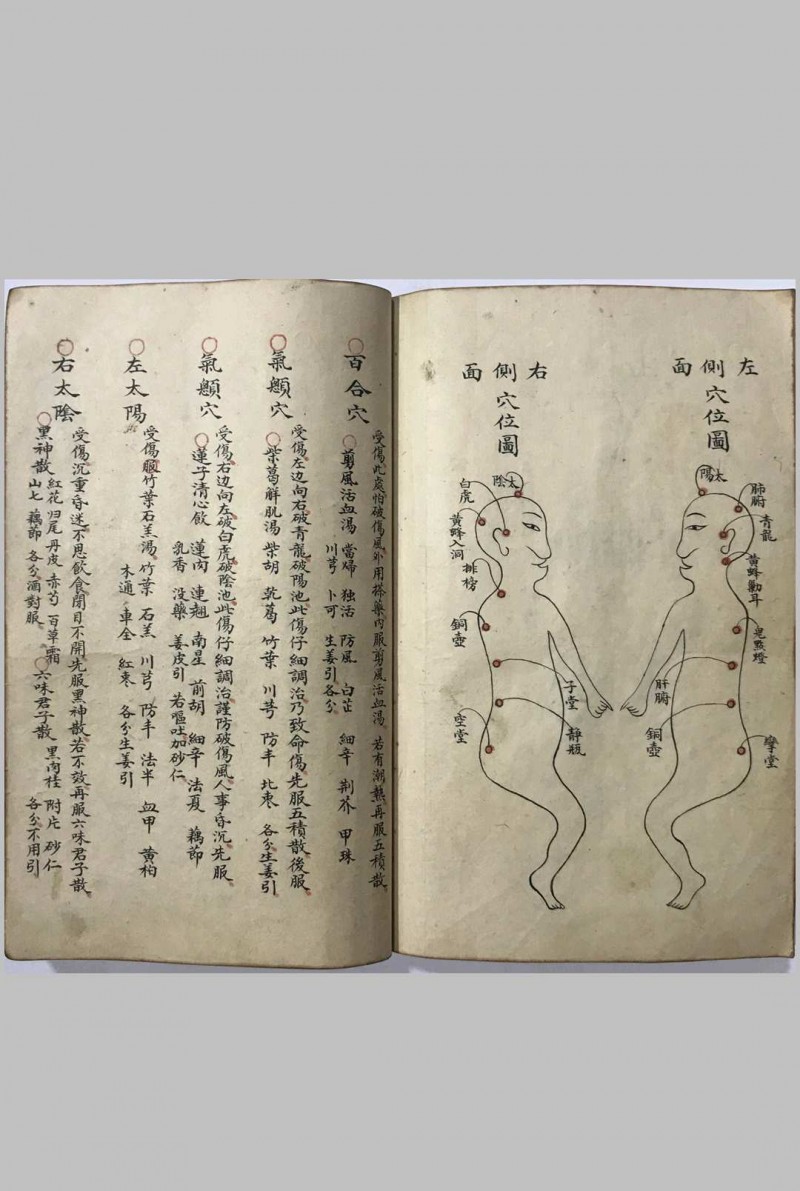 左側面
穴位圖
太陽
肺腑
青龍
黃蜂
點燈
肝腑
銅壺
堂
右側面
穴位圖
太陰
白虎
黃蜂入洞
排榜
銅壺
子堂
靜瓶
空堂
受傷此處怕破傷風外用搽藥內服剪風活血湯 若有潮熱再服五積散
百合穴
剪風活血湯 當歸 独活 防風 白芷 細辛 荆芥 甲珠
川芎 卜可 生姜引各分
受傷左边向右破青龍破陽池此傷仔細調治乃致命傷先服五積散後服
氣顖穴
柴葛解肌湯 柴胡 乾葛 竹葉 川芎 防丰 北枣 各分生姜引
受傷右边向左破白虎破陰池此傷仔細調治謹防破傷風人事昏沉先服
氣顖穴
蓮子清心飲 蓮肉 連翹 南星 前胡 細辛 法夏 藕節
乳香 没藥 姜皮引 若嘔吐加砂仁
左太陽
受傷服竹葉石羔湯 竹葉 石羔 川芎 防丰 法半 血甲 黄柏
木通 車全 紅枣 各分生姜引
受傷沉重昏迷不思飲食閉目不開先服黑神散若不效再服六味君子散
右太陰
黑神散 紅花 归尾 丹皮 赤芍 百草霜
山七 藕節 各分酒對服
六味君子散 黑肉桂 附片 砂仁
各分不用引